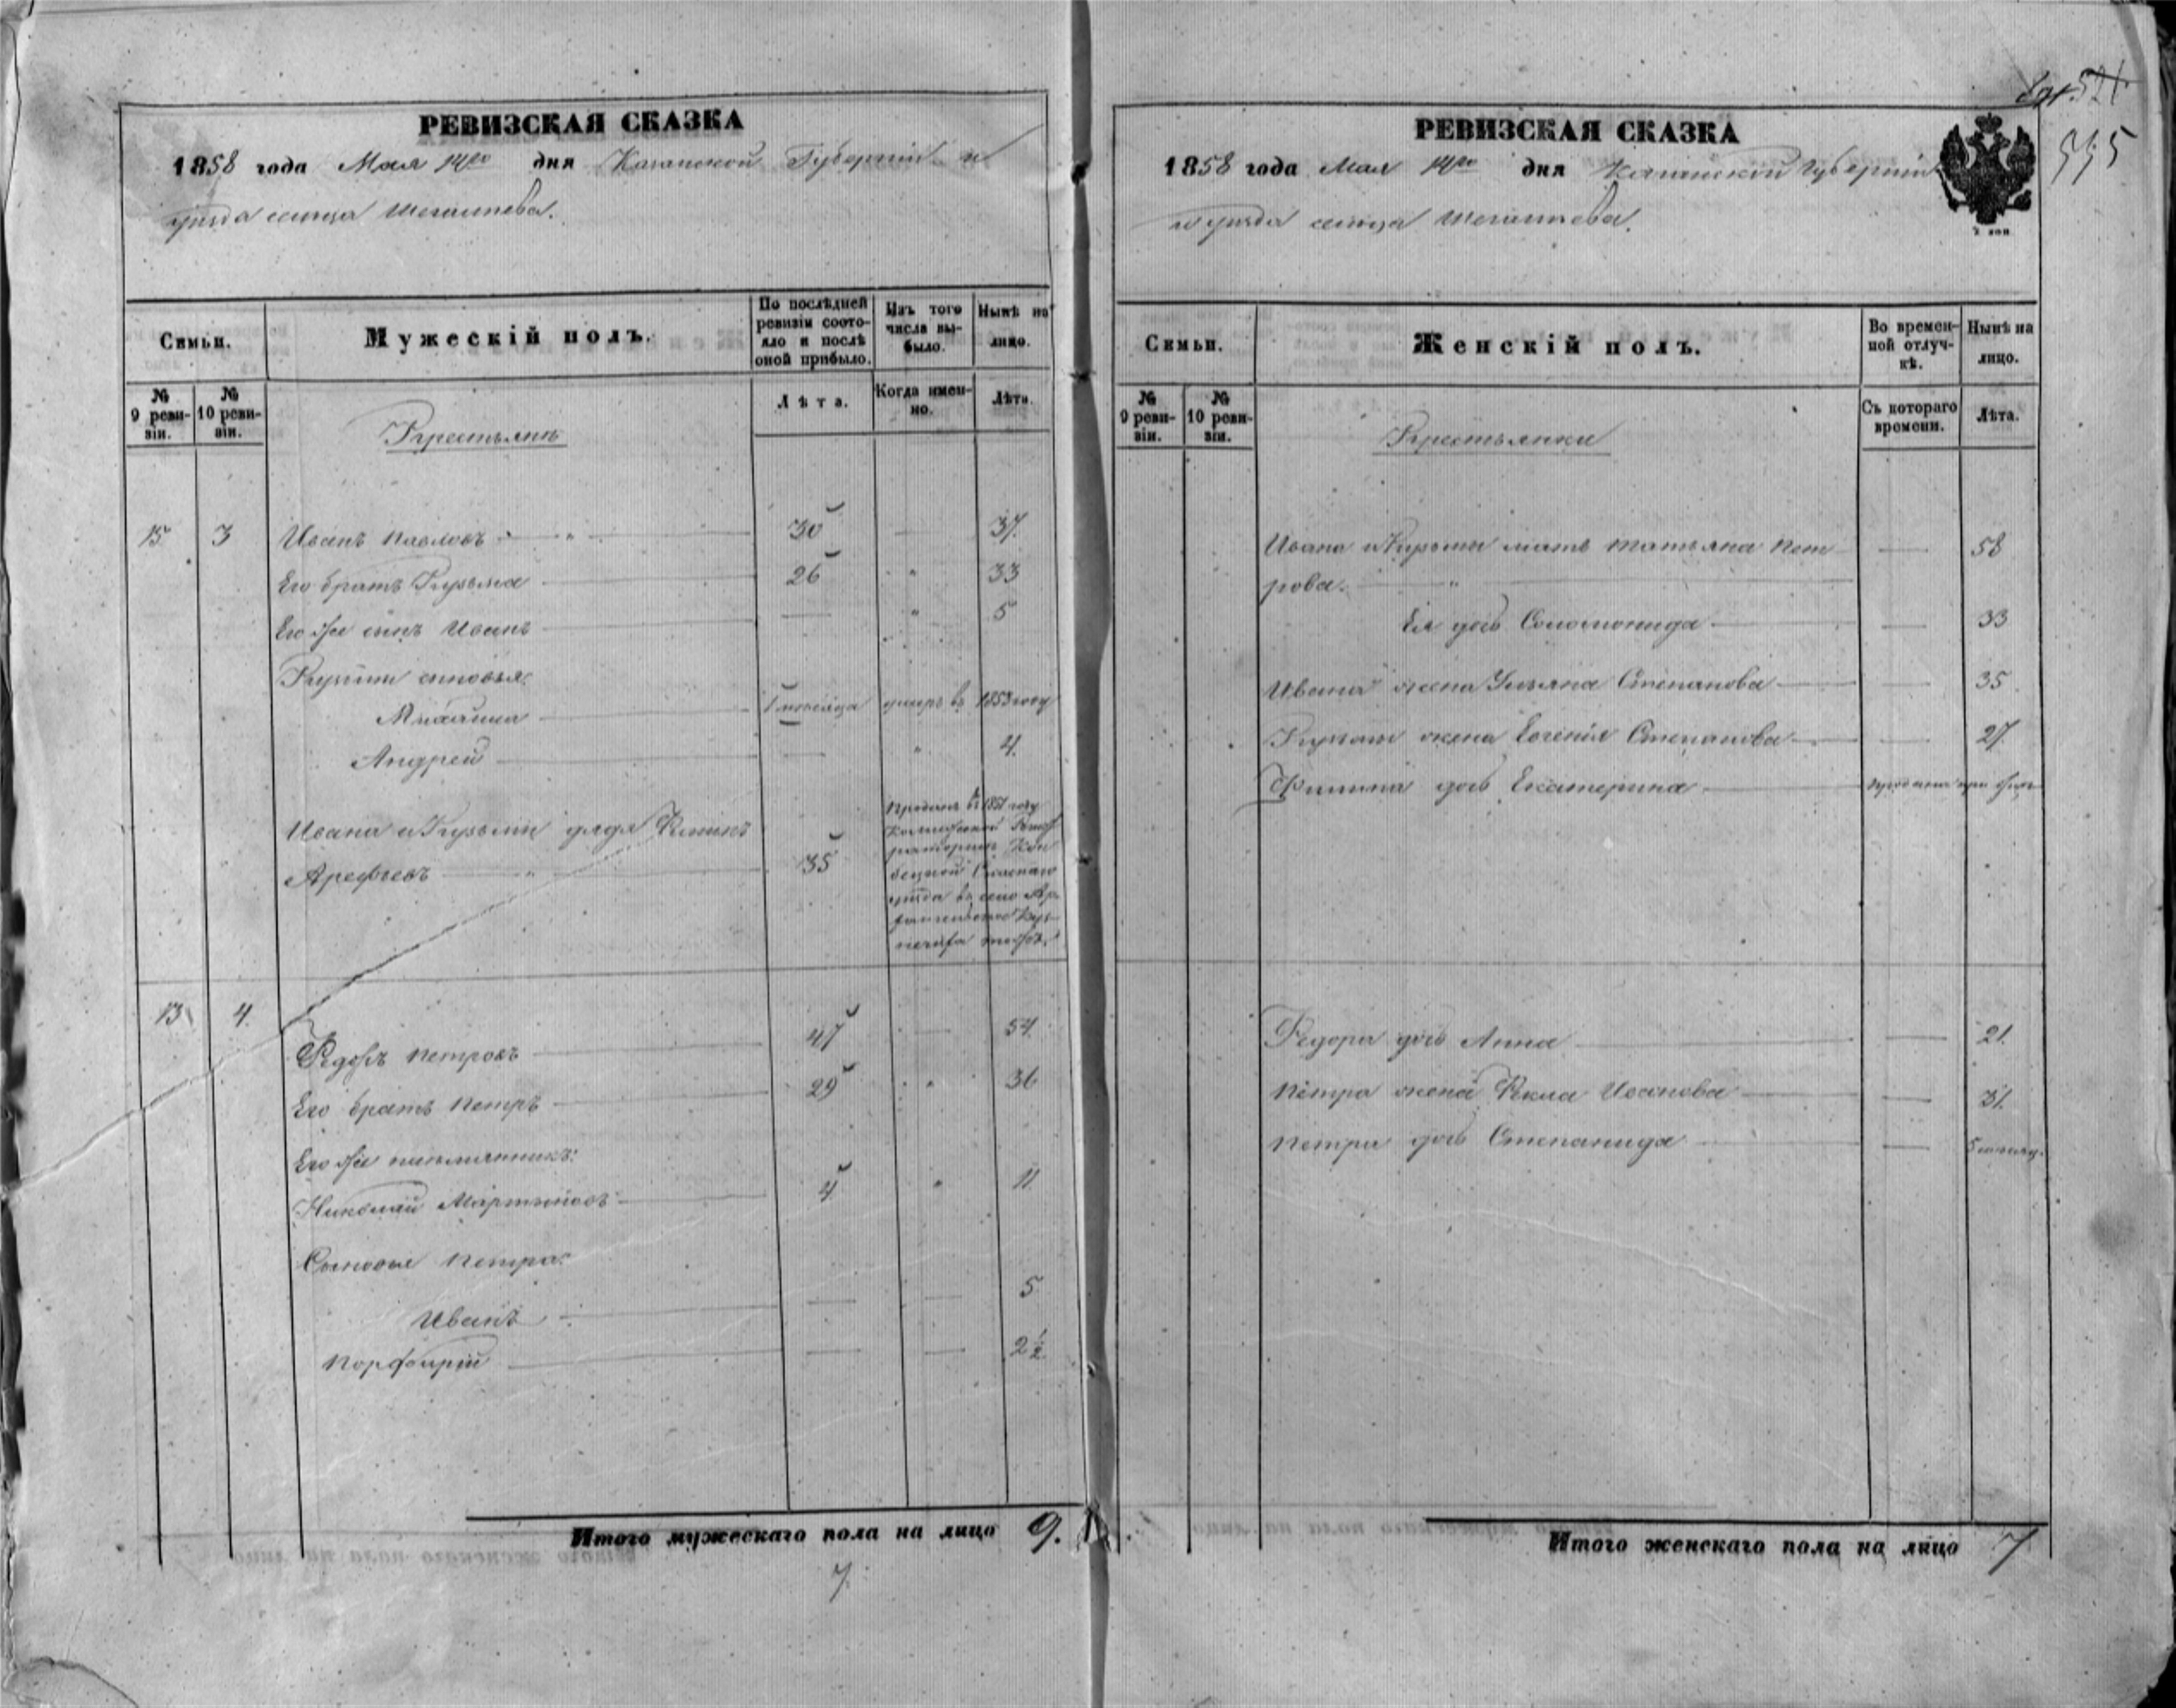 РЕВИЗСКАЯ СКАЗКА
1858 года Мая 14го дня Казанской Губерніи и
уѣзда сельца
Семьи.
Мужескій полъ.
По послѣдней ревизіи состояло и послѣ оной прибыло.
Изъ того числа выбыло.
Нынѣ на лицо.
№ 9 ревизіи.
№ 10 ревизіи.
Лѣта.
Когда именно.
Лѣта.
Крестьяне
15 3 Иванъ Павловъ 30 37.
Его братъ Кузьма 26 " 33
Его же сынъ Иванъ " 5
Кузьмы сыновья:
Михаила 1 месяца умеръ въ 1853 году
Андрей " 4.
Ивана и Кузьмы дядя Филипъ
Арефьевъ 35
Проданъ въ 1851 году
уѣзда въ село
13 4.
Федоръ Петровъ 47 54.
Его братъ Петръ 29 " 36
Его же племянникъ:
Николай Мартыновъ 4 " 11.
Сыновья Петра:
Иванъ 5
Порфирій 2 1/2
Итого мужескаго пола на лицо 9.
7.
521
555
РЕВИЗСКАЯ СКАЗКА
1858 года Мая 14го дня Казанской Губерніи
и уѣзда сельца
Семьи.
Женскій полъ.
Во временной отлучкѣ.
Нынѣ на лицо.
№ 9 ревизіи.
№ 10 ревизіи.
Съ котораго времени.
Лѣта.
Крестьянки
Ивана и Кузьмы мать Татьяна Пет 58
рова. "
Ея дочь Соломонида 33
Ивана жена Ульяна Степанова 35
Кузьмы жена Евгенія Степанова 27.
Филипа дочь Екатерина продана при отцѣ
Федора дочь Анна 21.
Петра жена Фекла Иванова 31.
Петра дочь Степанида 5 месяц.
Итого женскаго пола на лицо 7